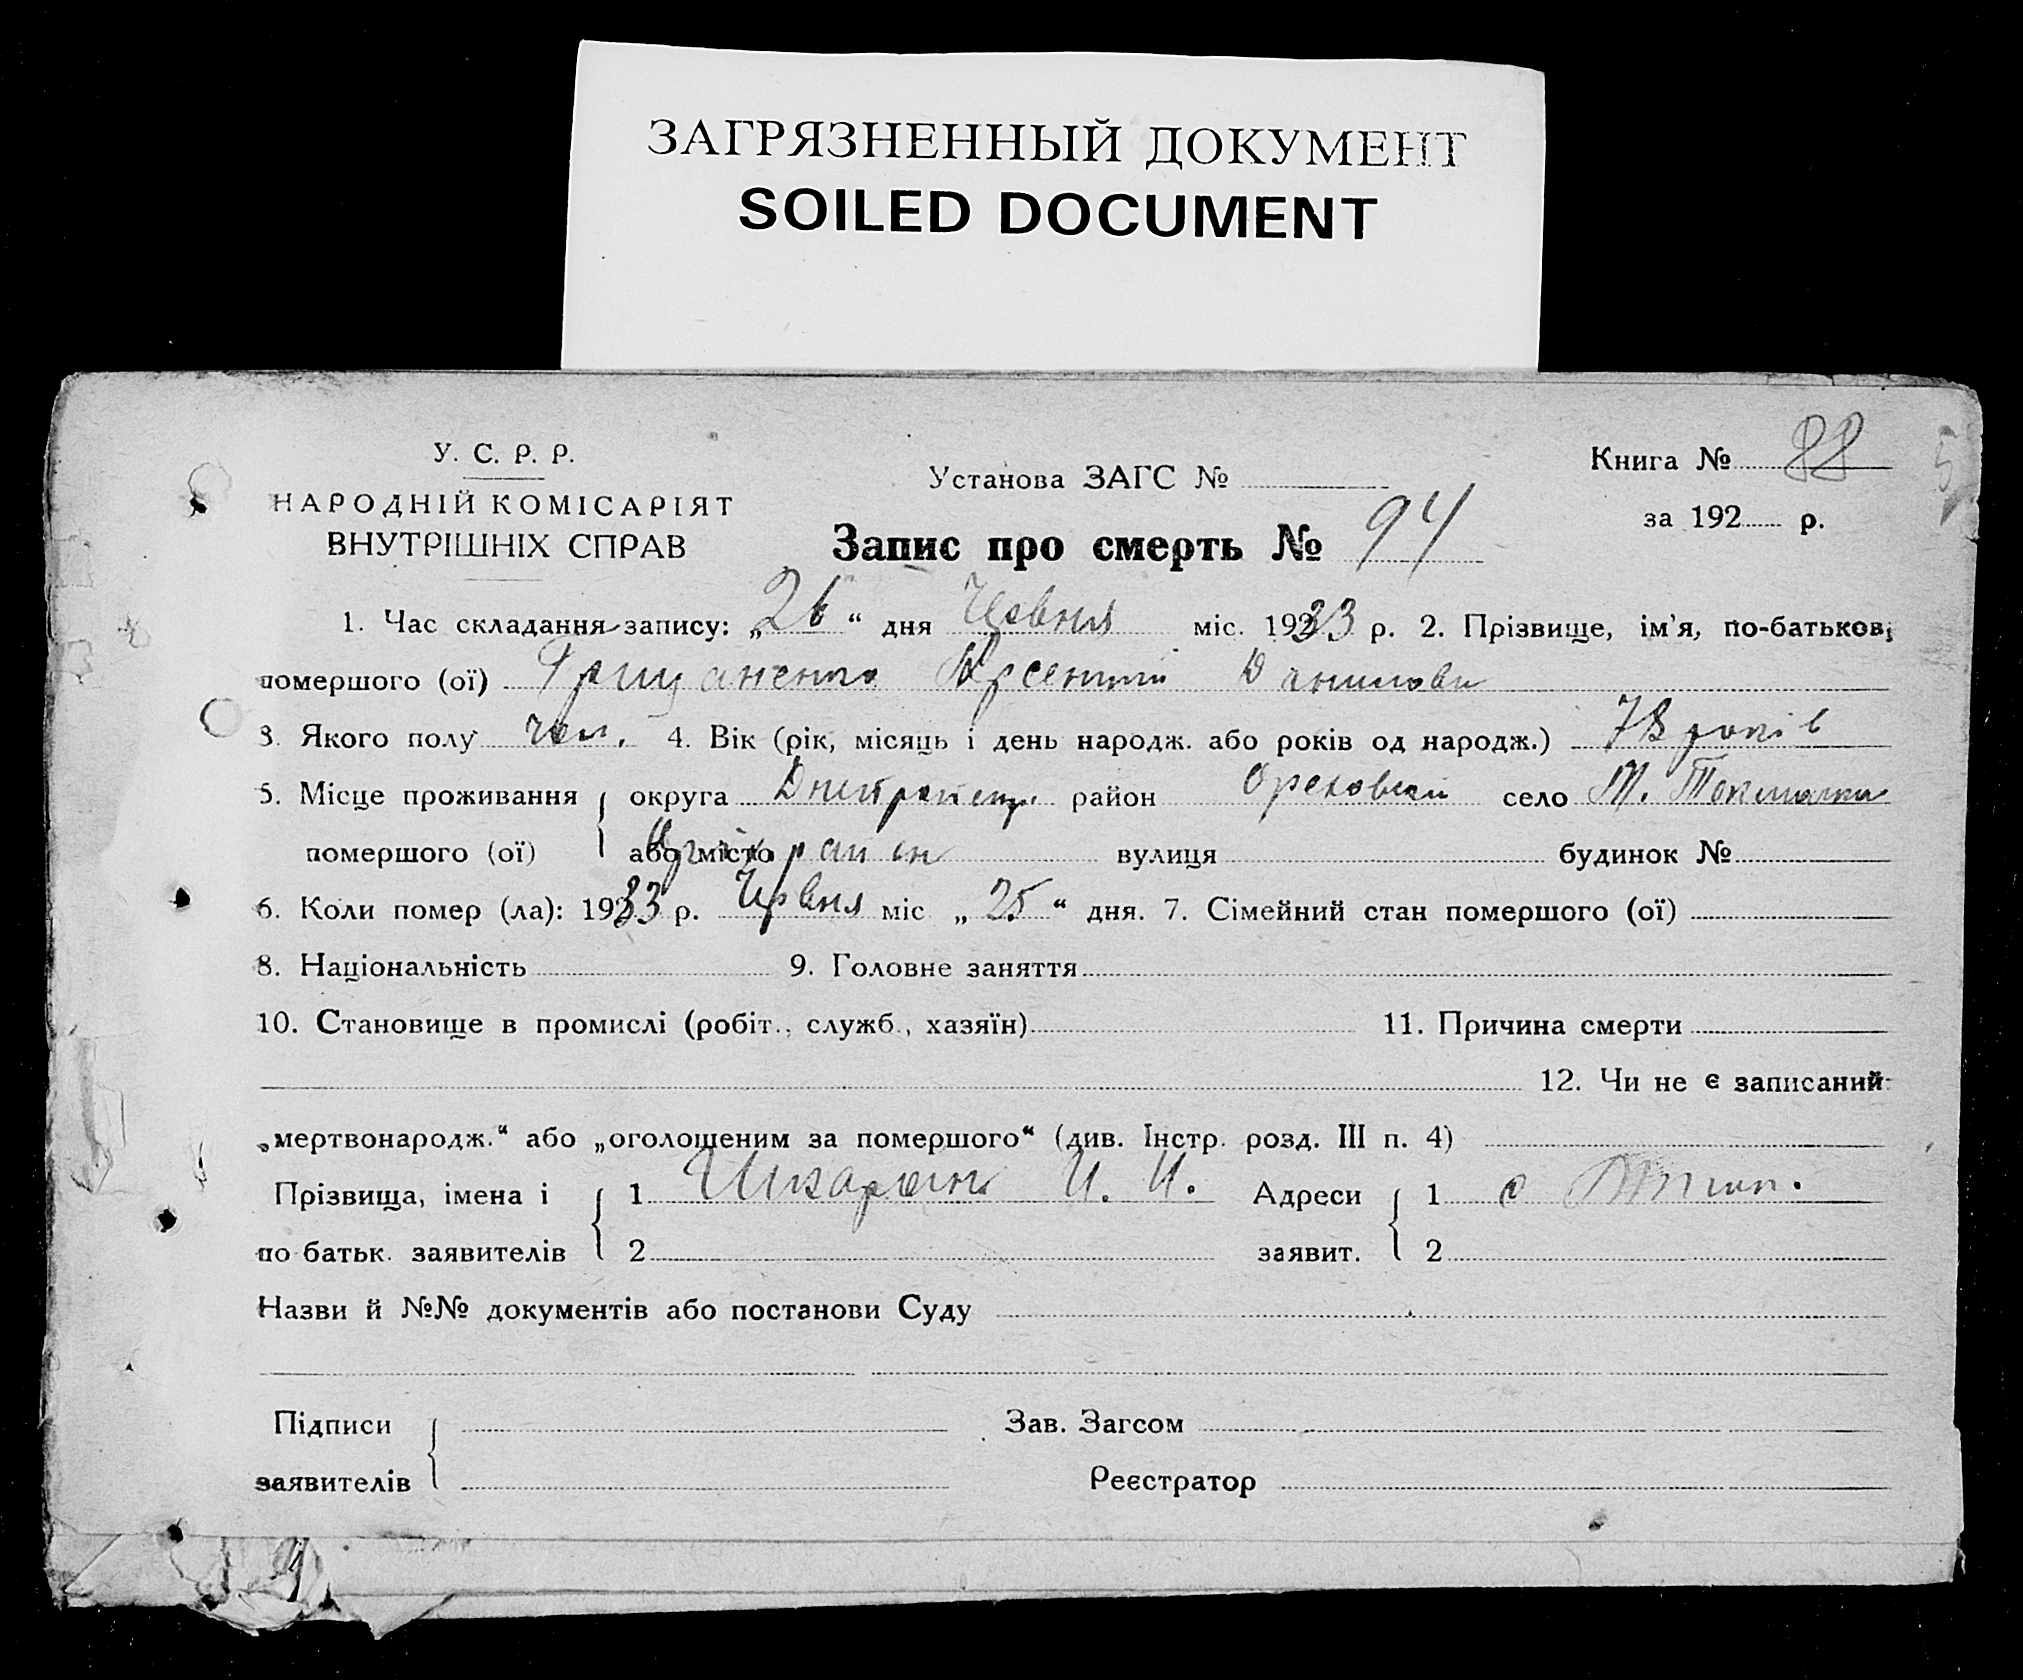 ЗАГРЯЗНЕННЫЙ ДОКУМЕНТ
SOILED DOCUMENT
У. С. Р. Р.
НАРОДНІЙ КОМІСАРІЯТ
ВНУТРІШНІХ СПРАВ
Установа ЗАГС №
Книга № 88
за 192 р.
Запис про смерть № 94
1. Час складання запису: „26“ дня Червня міс. 1933 р. 2. Прізвище, ім'я, по-батькові
помершого (ої) Грицаненко Арсентий Данилови
3. Якого полу чол. 4. Вік (рік, місяць і день народж. або років од народж.) 78 років
5. Місце проживання округа район Ореховский село М. Токмачка
помершого (ої) або місто вулиця будинок №
6. Коли помер (ла): 1933 р. Червня міс „25“ дня. 7. Сімейний стан помершого (ої)
8. Національність 9. Головне заняття
10. Становище в промислі (робіт., служб., хазяїн) 11. Причина смерти
12. Чи не є записаний
„мертвонародж.“ або „оголошеним за помершого“ (див. Інстр. розд. III п. 4)
Прізвища, імена і 1 И. И. Адреси 1 с
по батьк. заявителів 2 заявит. 2
Назви й №№ документів або постанови Суду
Підписи Зав. Загсом
заявителів Реєстратор